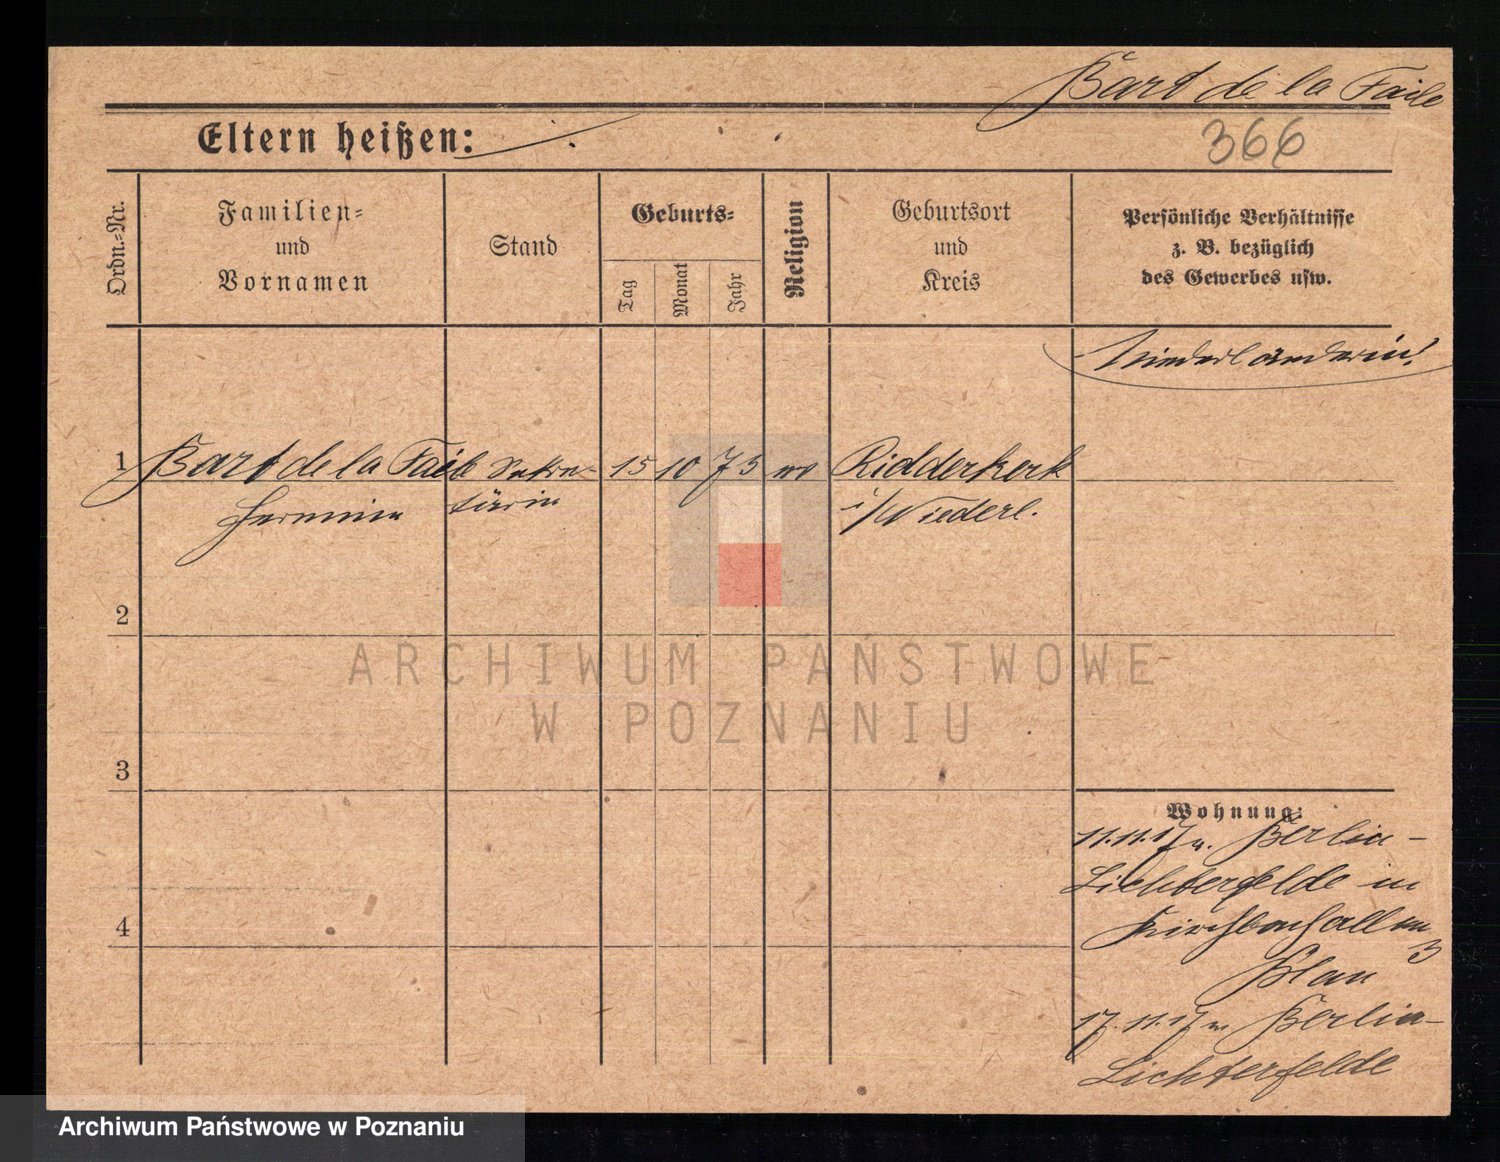 Bart de la Faile
Eltern heißen:
366
Ordn.-Nr.
Familien-
und
Vornamen
Stand
Geburts-
Tag
Monat
Jahr
Religion
Geburtsort
und
Kreis
Persönliche Verhältnisse
z. B. bezüglich
des Gewerbes usw.
Niederländerin!
1 Bart de la Faile Sekre- 15 10 73 Ridderkerk
Hermine tärin i/Niederl.
2
ARCHIWUM PAŃSTWOWE
W POZNANIU
3
Wohnung:
11.11.17 v. Berlin-
Lichterfelde in
3
4
17.11.17 n. Berlin-
Lichterfelde
Archiwum Państwowe w Poznaniu